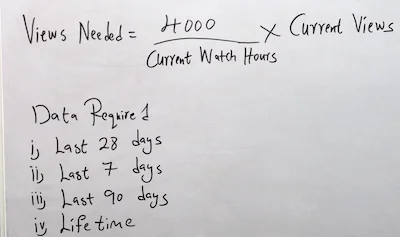 Views Needed = 4000 / Current Watch Hours × Current Views
Data Required
i, Last 28 days
ii, Last 7 days
iii, Last 90 days
iv, Lifetime